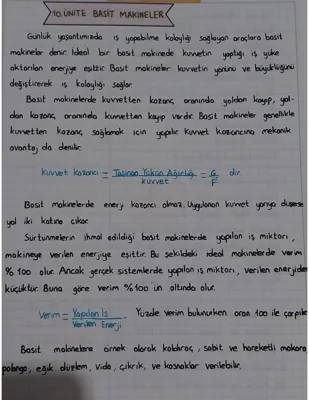 10. ÜNİTE BASİT MAKİNELER
Günlük yaşantımızda iş yapabilme kolaylığı sağlayan araçlara basit
makineler denir. İdeal bir basit makinede kuvvetin yaptığı iş yüke
aktarılan enerjiye eşittir. Basit makineler kuvvetin yönünü ve büyüklüğünü
değiştirerek iş kolaylığı sağlar.
Basit makinelerde kuvvetten kazanç oranında yoldan kayıp, yol-
dan kazanç oranında kuvvetten kayıp vardır. Basit makineler genellikle
kuvvetten kazanç sağlamak için yapılır. Kuvvet kazancına mekanik
avantaj da denilir.
Kuvvet kazancı = Taşınan Yükün Ağırlığı = G dir.
kuvvet F
Basit makinelerde enerji kazancı olmaz. Uygulanan kuvvet yarıya düşerse
yol iki katına çıkar.
Sürtünmelerin ihmal edildiği basit makinelerde yapılan iş miktarı,
makineye verilen enerjiye eşittir. Bu şekildeki ideal makinelerde verim
% 100 olur. Ancak gerçek sistemlerde yapılan iş miktarı, verilen enerjiden
küçüktür. Buna göre verim %100'ün altında olur.
Verim = Yapılan İş . Yüzde verim bulunurken oran 100 ile çarpılır.
Verilen Enerji
Basit makinelere örnek olarak kaldıraç, sabit ve hareketli makara,
palanga, eğik düzlem, vida, çıkrık, ve kasnaklar verilebilir.